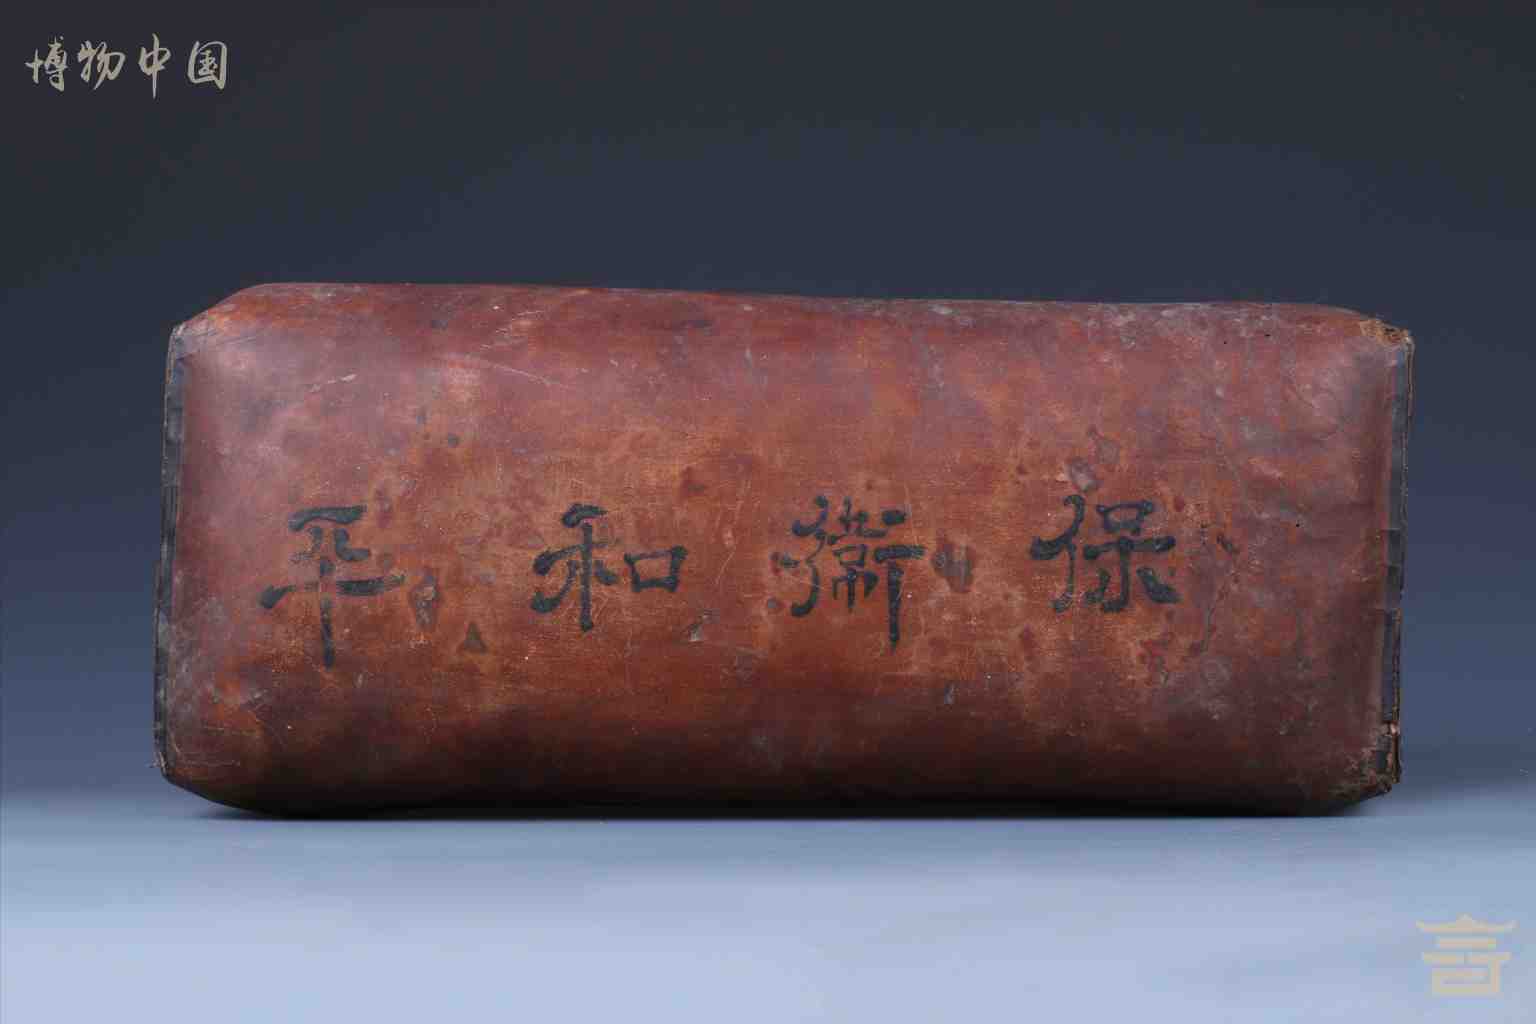 博物中国
保衛和平